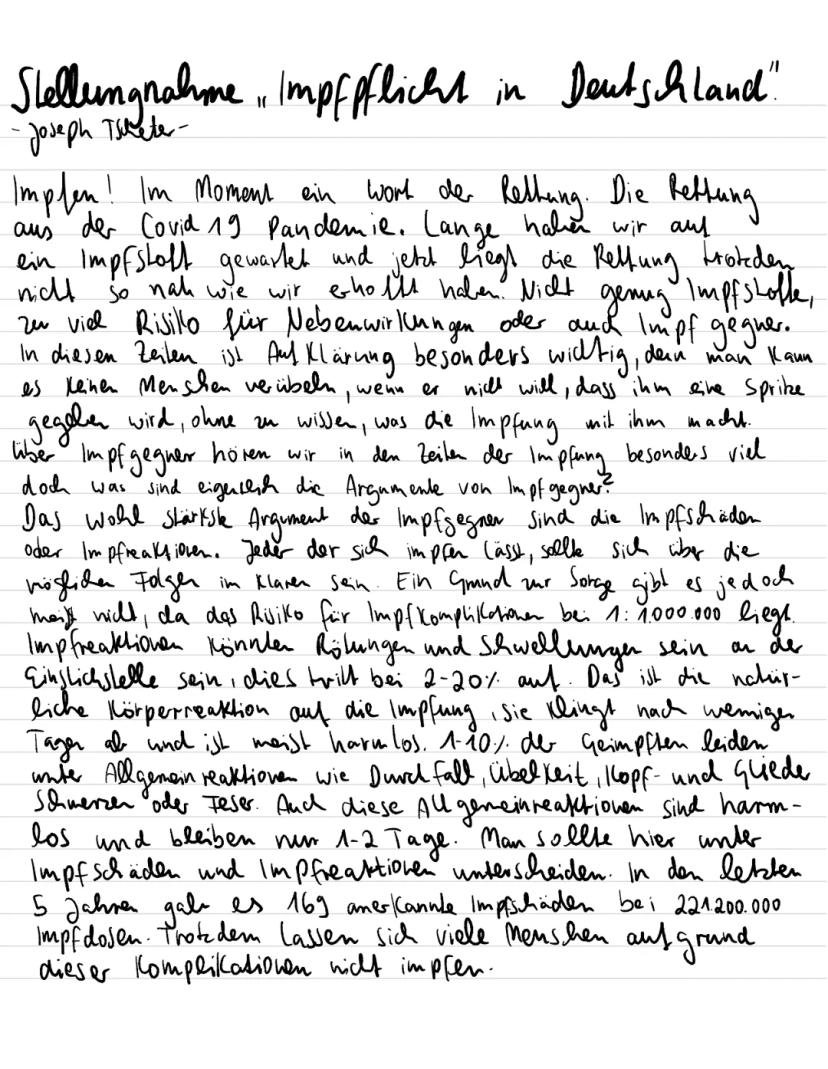 Stellungnahme „Impfpflicht in Deutschland"
- Joseph
Impfen! Im Moment ein Wort der Rettung. Die Rettung
aus der Covid 19 Pandemie. Lange haben wir auf
ein Impfstoff gewartet und jetzt liegt die Rettung trotzden
nicht so nah wie wir erhofft haben. Nicht genug Impfstoffe,
zu viel Risiko für Nebenwirkungen oder auch Impfgegner.
In diesen Zeiten ist Aufklärung besonders wichtig, denn man kann
es keinen Menschen verübeln, wenn er nicht will, dass ihm eine Spritze
gegeben wird, ohne zu wissen, was die Impfung mit ihm macht.
Über Impfgegner hören wir in den Zeiten der Impfung besonders viel
doch was sind eigentlich die Argumente von Impfgegner?
Das wohl stärkste Argument der Impfgegner sind die Impfschäden
oder Impfreaktionen. Jeder der sich impfen lässt, sollte sich über die
möglichen Folgen im Klaren sein. Ein Grund zur Sorge gibt es jedoch
meist nicht, da das Risiko für Impfkomplikationen bei 1:1.000.000 liegt.
Impfreaktionen könnten Rötungen und Schwellungen sein an der
Einstichstelle sein, dies tritt bei 2-20% auf. Das ist die natür-
liche Körperreaktion auf die Impfung, sie klingt nach wenigen
Tagen ab und ist meist harmlos. 1-10% der Geimpften leiden
unter Allgemeinreaktionen wie Durchfall, Übelkeit, Kopf- und Glieder
Schmerzen oder Fieber. Auch diese Allgemeinreaktionen sind harm-
los und bleiben nur 1-2 Tage. Man sollte hier unter
Impfschäden und Impfreaktionen unterscheiden. In den letzten
5 Jahren gab es 169 anerkannte Impfschäden bei 221.200.000
Impfdosen. Trotzdem lassen sich viele Menschen aufgrund
dieser Komplikationen nicht impfen.